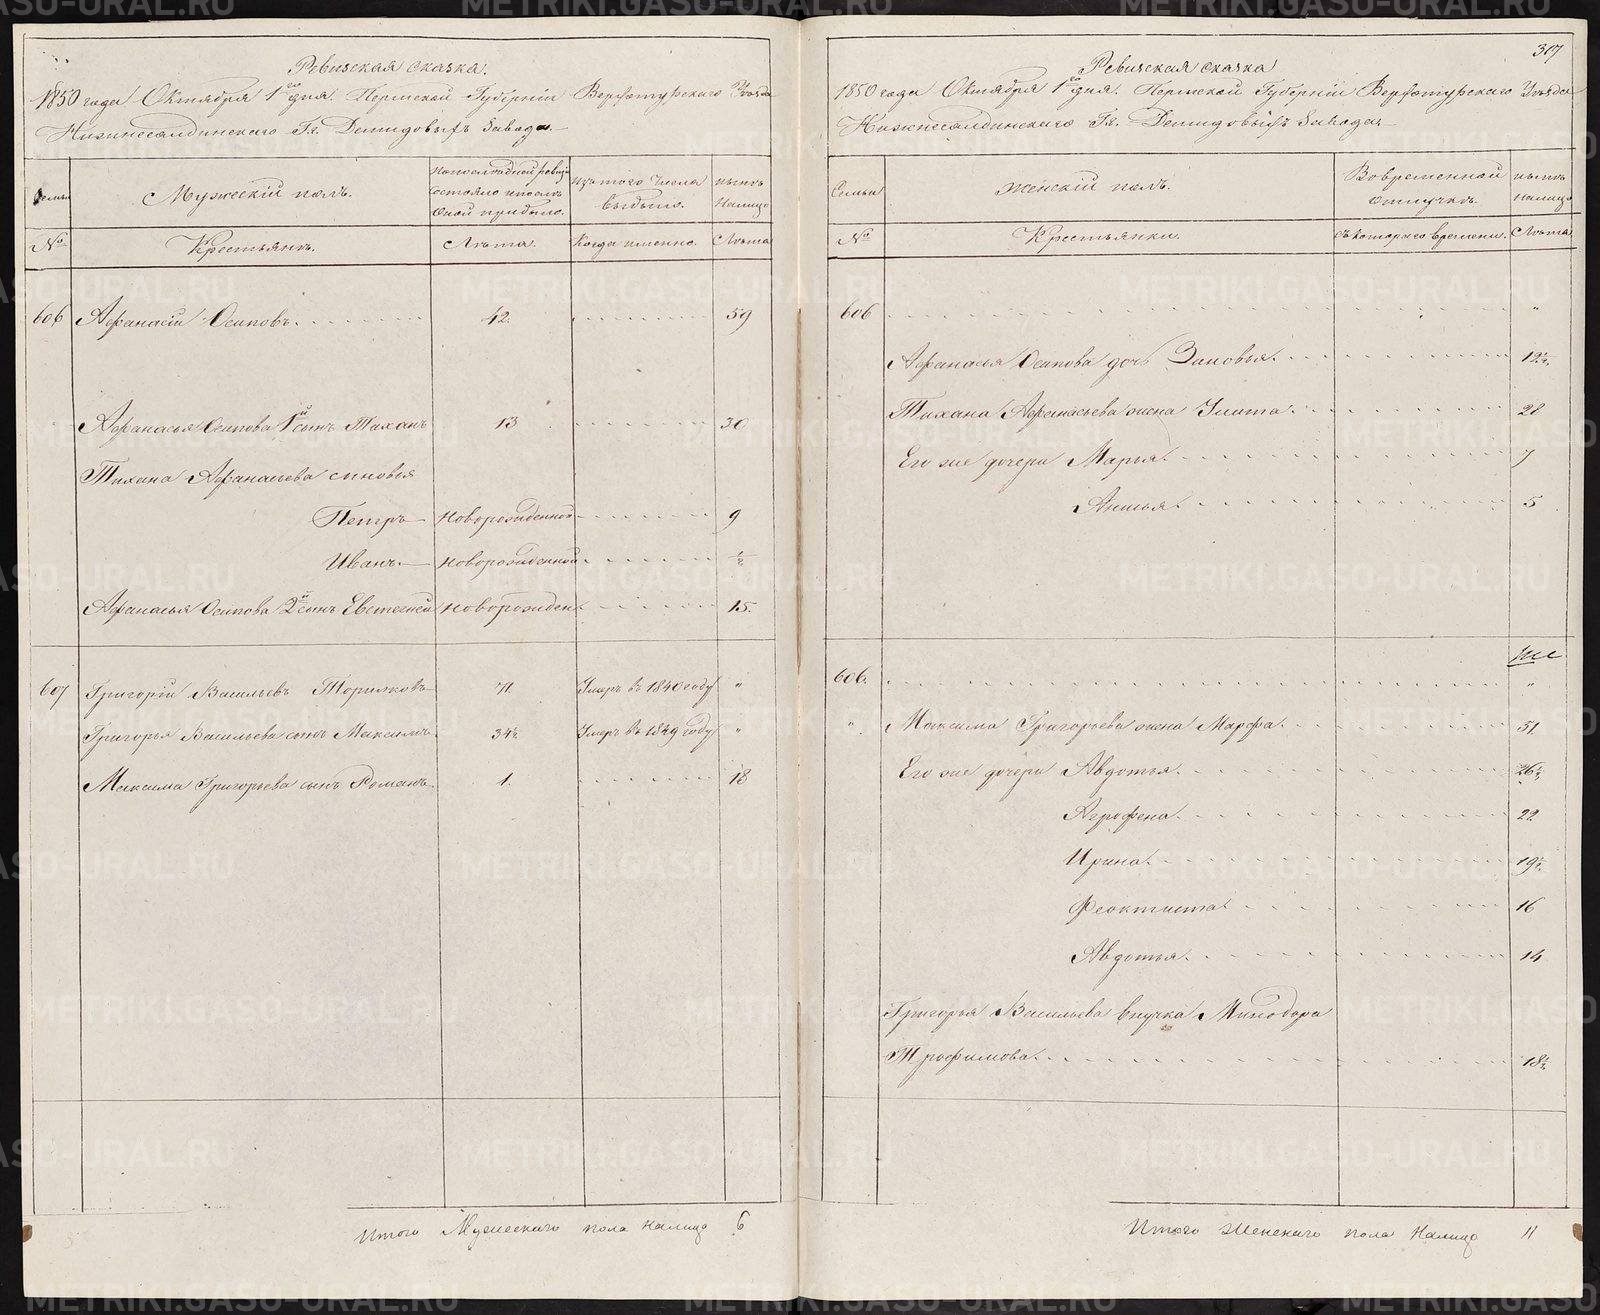 Ревизская сказка.
1850 года Октября 1го дня. Пермской Губернiи Верхотурскаго Уѣзда
Нижнесалдинскаго Гг. Демидовыхъ завода.
Семьи
Мужескiй полъ.
По последней ревизiи состояло и послѣ оной прибыло.
Изъ того числа выбыло.
нынѣ налицо
№
Крестьянъ.
Лѣта.
Когда именно.
Лѣта
606 Афанасiй Осиповъ. 42. 59
Афанасья Осипова 1й сынъ Тиханъ 13 30
Тихана Афанасьева сыновья
Петръ Новорожденной 9
Иванъ. Новорожденной 1/2
Афанасья Осипова 2й сынъ Евстегней Новорожден. 15.
607 Григорiй Васильевъ 71. Умеръ въ 1840 году "
Григорья Васильева сынъ Максимъ 34½ Умеръ въ 1849 году "
Максима Григорьева сынъ Романъ 1. 18
Итого Мужескаго пола налицо 6
317
Ревизская сказка
1850 года Октября 1го дня. Пермской Губернiи Верхотурскаго Уѣзда
Нижнесалдинскаго Гг. Демидовыхъ завода.
Семьи
Женскiй полъ.
Во временной отлучкѣ.
нынѣ налицо
№
Крестьянки.
съ котораго времени.
Лѣта
606 "
Афанасья Осипова дочь Зиновья. 12½
Тихана Афанасьева жена Улита. 28
Его же дочери Марья. 7
Анисья. 5
606. "
" Максима Григорьева жена Марфа. 51
Его же дочери Авдотья. 26½
Агрофена. 22
Ирина. 19½
Феоктиста. 16
Авдотья. 14
Григорья Васильева внучка Минодора
Трофимова. 18½
Итого Женскаго пола налицо 11
METRIKI.GASO-URAL.RU